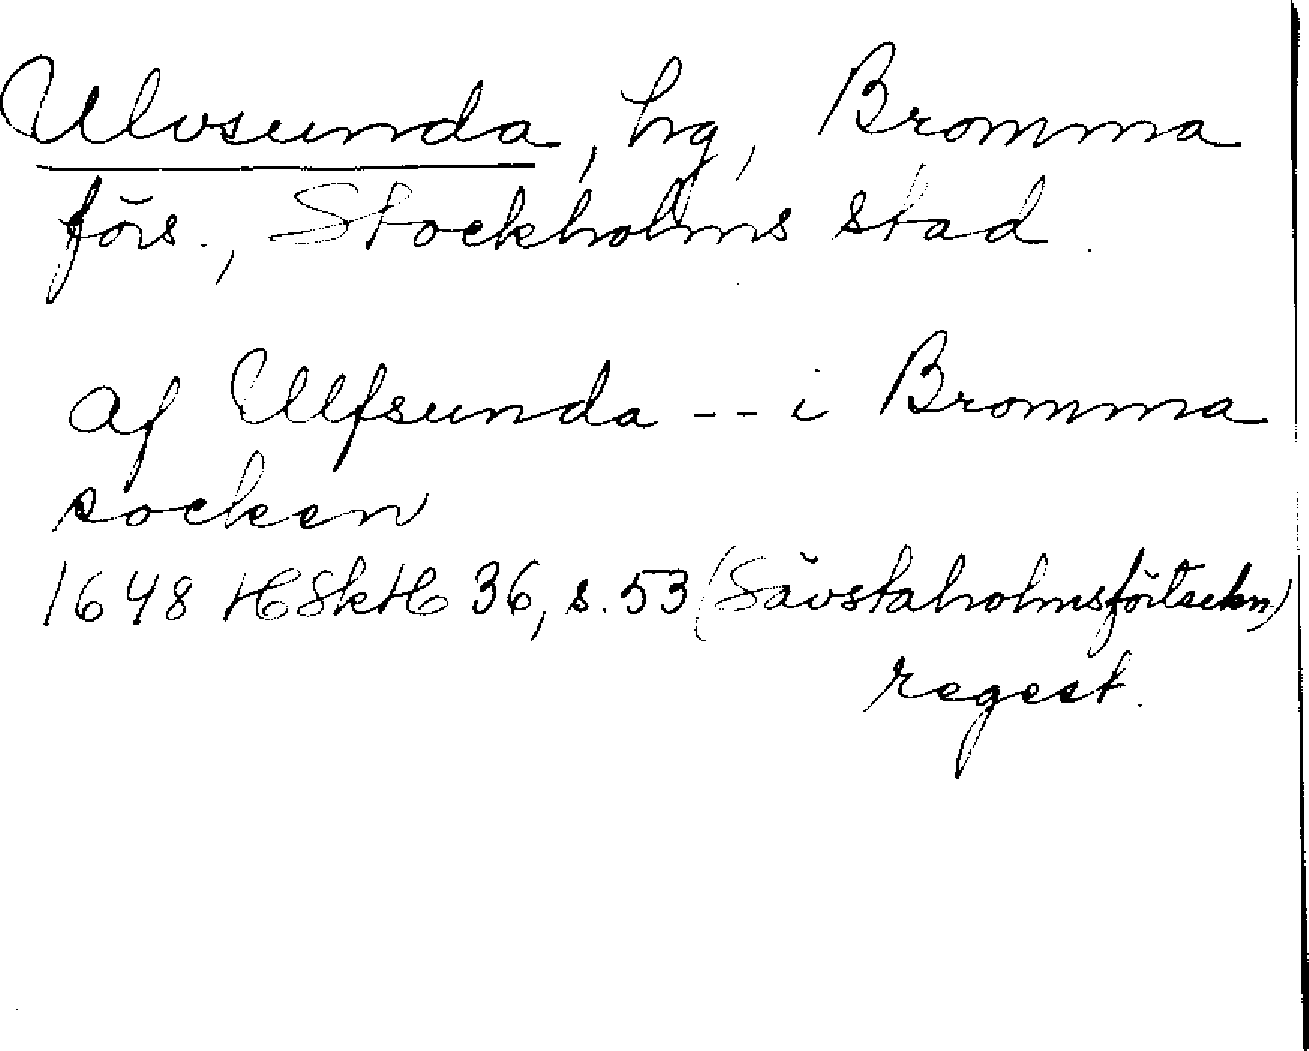 Ulvsunda, hg, Bromma
förs., Stockholms stad.
af Ulfsunda -- i Bromma
socken
1648 HSkH 36, s. 53 (Sävstaholmsförtekn)
regest.